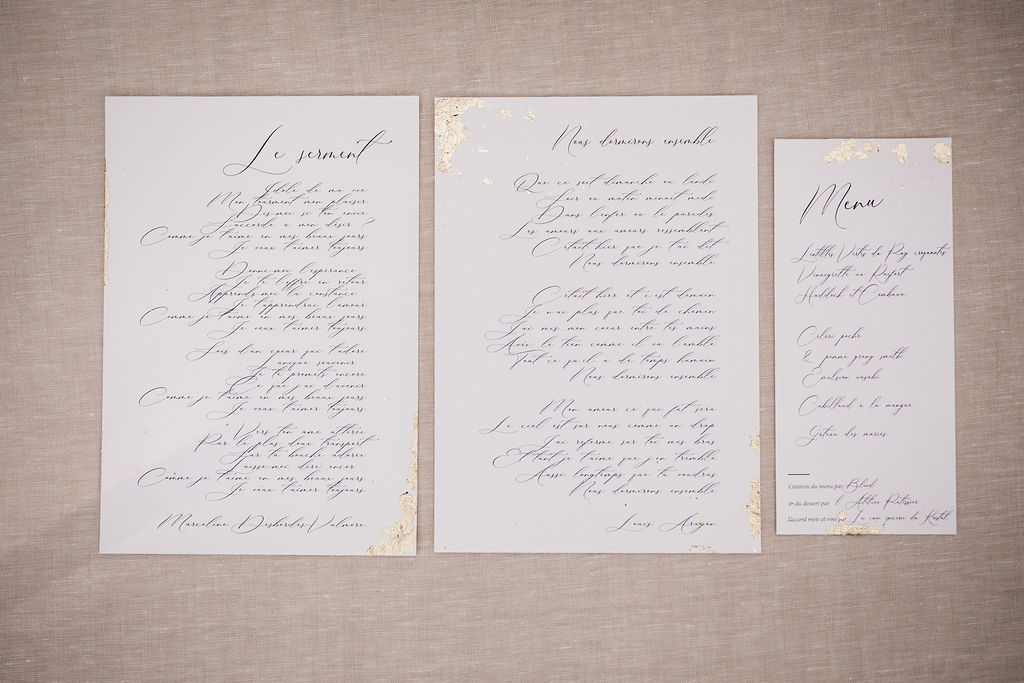 Le serment
Idole de ma vie
Mon tourment mon plaisir
Dis-moi si ton envie
S'accorde à mon désir ?
Comme je t'aime en mes beaux jours
Je veux t'aimer toujours
Donne-moi l'espérance
Je te l'offre en retour
Apprends-moi la constance
Je t'apprendrai l'amour
Comme je t'aime en mes beaux jours
Je veux t'aimer toujours
Sois d'un cœur qui t'adore
L'unique souvenir
Je te promets encore
Ce que j'ai d'avenir
Comme je t'aime en mes beaux jours
Je veux t'aimer toujours
Vers ton âme attirée
Par le plus doux transport
Sur ta bouche adorée
Laisse-moi dire encor
Comme je t'aime en mes beaux jours
Je veux t'aimer toujours
Marceline Desbordes-Valmore
Nous dormirons ensemble
Que ce soit dimanche ou lundi
Soir ou matin minuit midi
Dans l'enfer ou le paradis
Les amours aux amours ressemblent
C'était hier que je t'ai dit
Nous dormirons ensemble
C'était hier et c'est demain
Je n'ai plus que toi de chemin
J'ai mis mon cœur entre tes mains
Avec le tien comme il va l'amble
Tout ce qu'il a de temps humain
Nous dormirons ensemble
Mon amour ce qui fut sera
Le ciel est sur nous comme un drap
J'ai refermé sur toi mes bras
Et tant je t'aime que j'en tremble
Aussi longtemps que tu voudras
Nous dormirons ensemble
Louis Aragon
Menu
Lentilles Vertes du Puy croquantes
Vinaigrette au Raifort
Haddock et Combava
Céleri poché
& pomme grany smith
Emulsion wasabi
Cabillaud à la mangue
Gâteau des mariés
Création du menu par
& du dessert par l'Atelier Patissier
L'accord mets et vins par La cave épicerie de Kristel